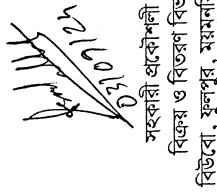 ০১/০৭/২৫
সহকারী প্রকৌশলী
বিক্রয় ও বিতরণ বিভ
বিউবো, ফুলপুর, ময়মনি